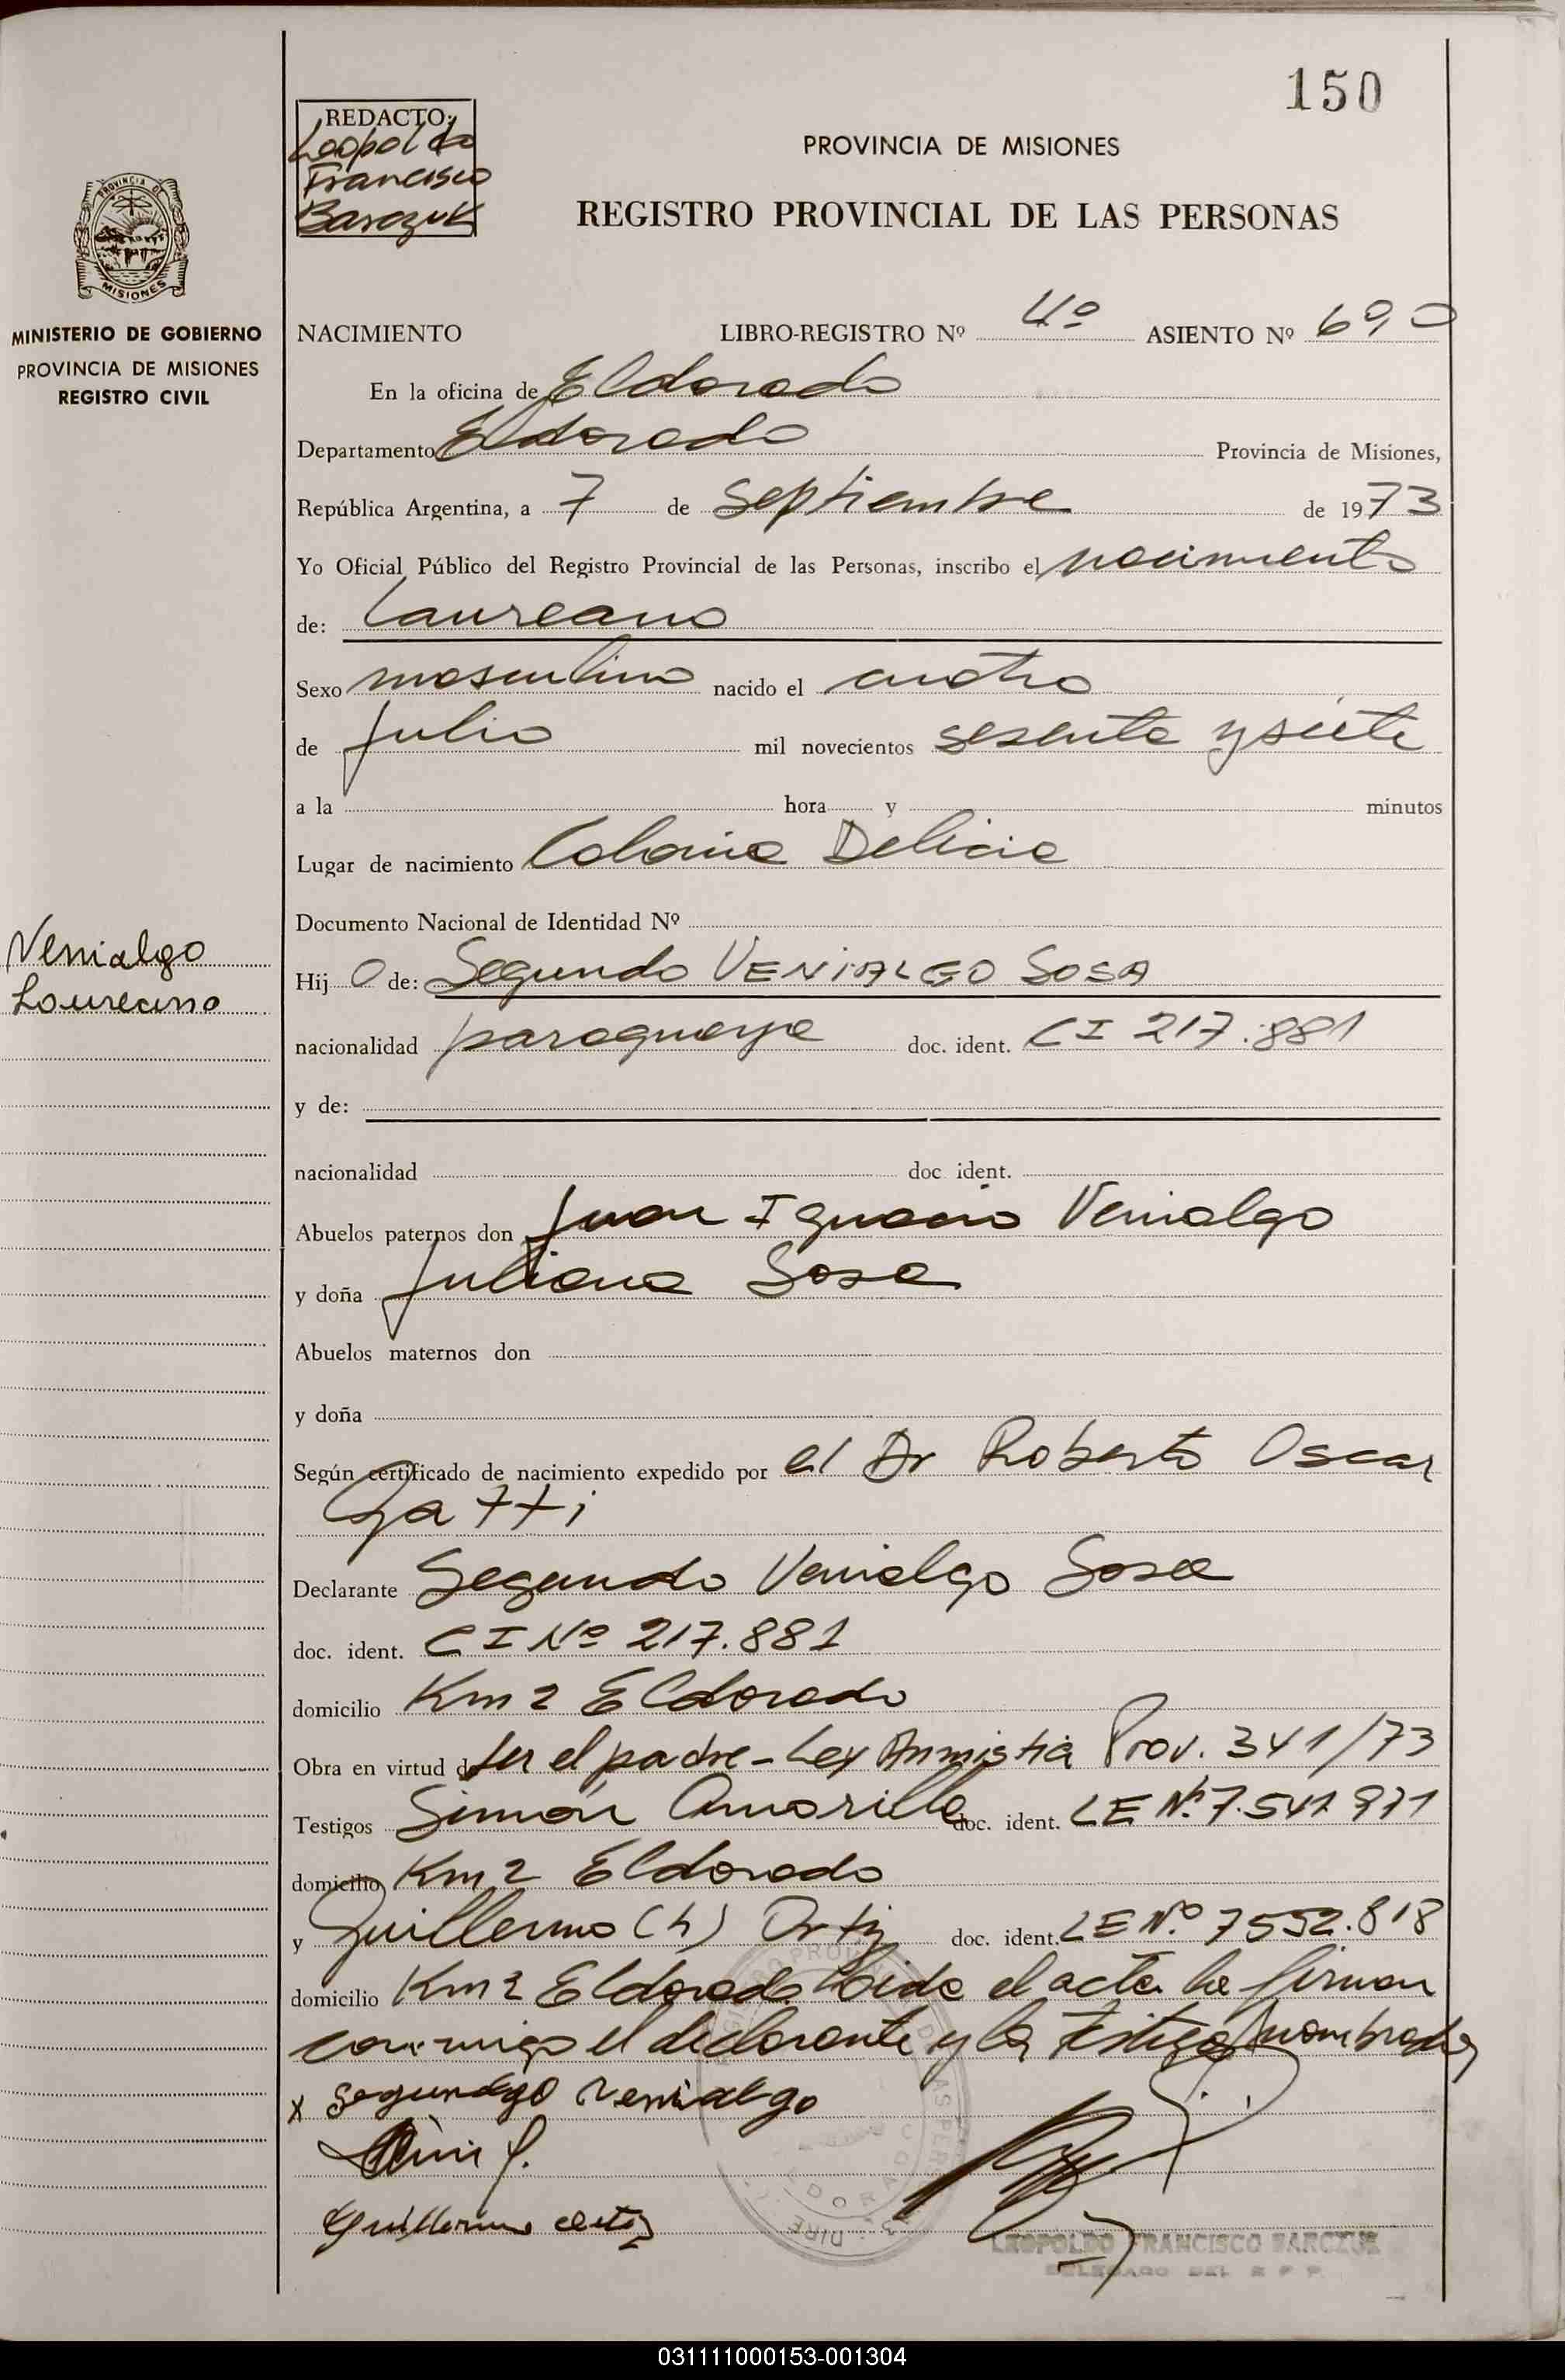 150
REDACTO:
Leopoldo
Francisco
Barczuk
PROVINCIA DE MISIONES
REGISTRO PROVINCIAL DE LAS PERSONAS
PROVINCIA DE
MISIONES
MINISTERIO DE GOBIERNO
PROVINCIA DE MISIONES
REGISTRO CIVIL
NACIMIENTO LIBRO-REGISTRO Nº 4º ASIENTO Nº 690
En la oficina de Eldorado
Departamento Eldorado Provincia de Misiones,
República Argentina, a 7 de Septiembre de 1973
Yo Oficial Público del Registro Provincial de las Personas, inscribo el nacimiento
de: Laureano
Sexo masculino nacido el cuatro
de julio mil novecientos sesenta y siete
a la hora y minutos
Lugar de nacimiento Colonia Delicia
Documento Nacional de Identidad Nº
Venialgo
Laureano
Hij o de: Segundo VENIALGO SOSA
nacionalidad paraguaya doc. ident. CI 217.881
y de:
nacionalidad doc ident.
Abuelos paternos don Juan Ignacio Venialgo
y doña Juliana Sosa
Abuelos maternos don
y doña
Según certificado de nacimiento expedido por el Dr Roberto Oscar
Gatti
Declarante Segundo Venialgo Sosa
doc. ident. CI Nº 217.881
domicilio Km 2 Eldorado
Obra en virtud de ser el padre - Ley Amnistia Prov. 341/73
Testigos Simón Amarilla doc. ident. LE Nº 7.541.971
domicilio Km 2 Eldorado
y Guillermo (h) Ortiz doc. ident. LE Nº 7552.818
domicilio Km 2 Eldorado Leida el acta la firman
conmigo el declarante y los testigos nombrados
x Segundo Venialgo
Guillermo Ortiz
LEOPOLDO FRANCISCO BARCZUK
DELEGADO DEL R P P
031111000153-001304